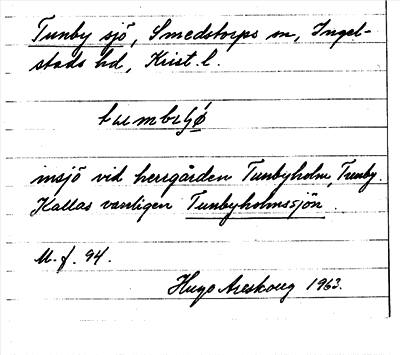 Tunby sjö, Smedstorps sn, Ingel-
stads hd, Krist. l.
insjö vid herrgården Tunbyholm, Tunby.
Kallas vanligen Tunbyholmssjön.
M. f. 94.
Hugo Areskoug 1963.